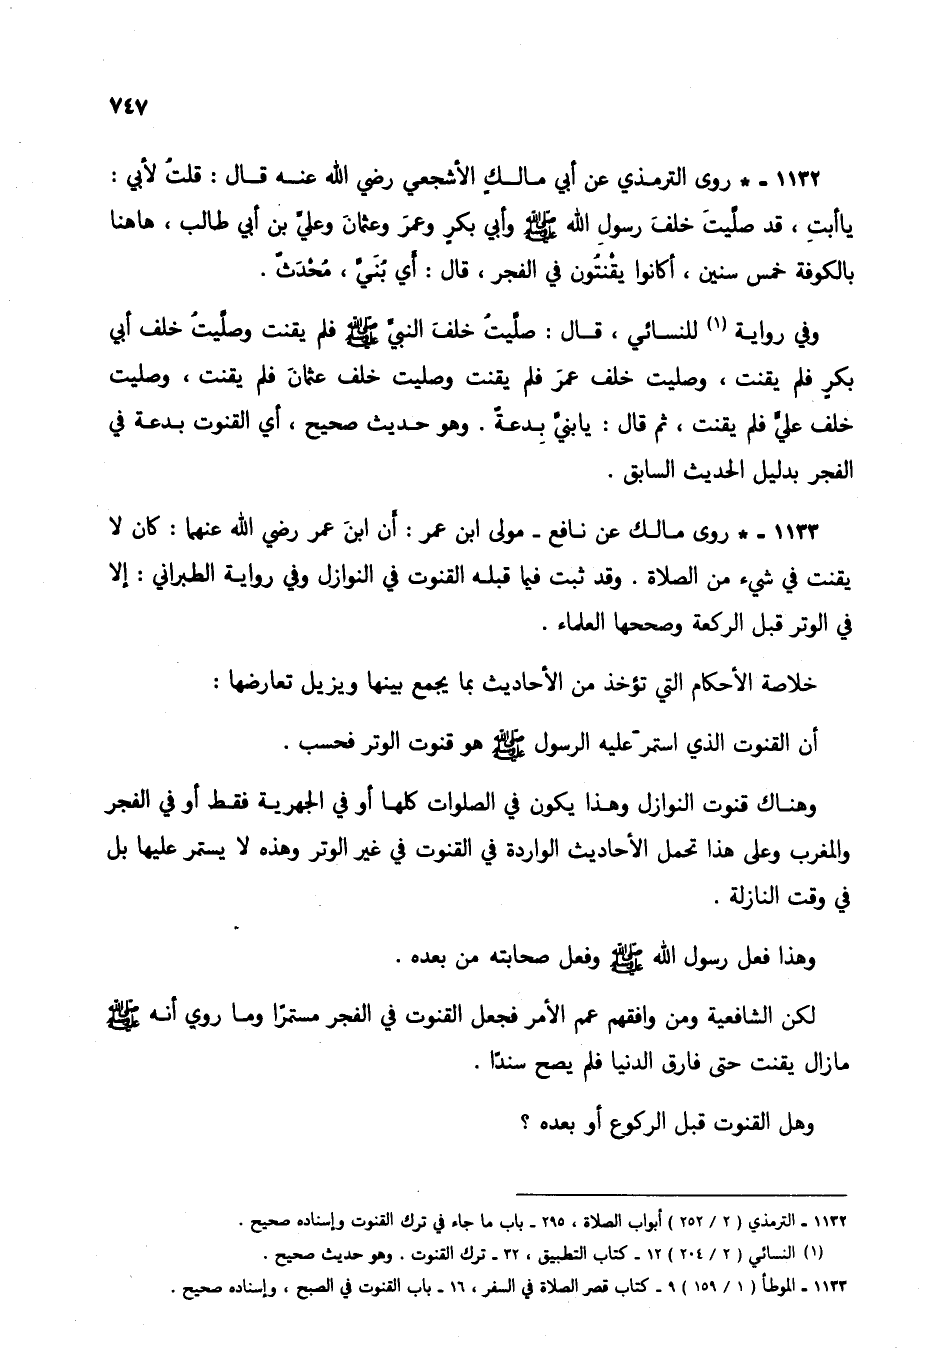 ٧٤٧
١١٣٢ - * روى الترمذي عن أبي مالكٍ الأشجعي رضي الله عنه قال : قلتُ لأبي :
ياأبتِ ، قد صلَّيتَ خلفَ رسولِ الله ﷺ وأبي بكرٍ وعمرَ وعثمانَ وعليِّ بن أبي طالب ، هاهنا
بالكوفة خمس سنين ، أكانوا يقْنتُون في الفجر ، قال : أَي بُنَيَّ ، مُحْدَثٌ .
وفي رواية (١) للنسائي ، قال : صلَّيتُ خلفَ النبيِّ ﷺ فلم يقنت وصلَّيتُ خلف أبي
بكرٍ فلم يقنت ، وصليت خلف عمرَ فلم يقنت وصليت خلف عثمانَ فلم يقنت ، وصليت
خلف عليٍّ فلم يقنت ، ثم قال : يابنيَّ بِدعةٌ . وهو حديث صحيح ، أي القنوت بدعة في
الفجر بدليل الحديث السابق .
١١٣٣ - * روى مالك عن نافع - مولى ابن عمر : أَن ابنَ عمر رضي الله عنهما : كان لا
يقنت في شيء من الصلاة . وقد ثبت فيما قبله القنوت في النوازل وفي رواية الطبراني : إلا
في الوتر قبل الركعة وصححها العلماء .
خلاصة الأحكام التي تؤخذ من الأحاديث بما يجمع بينها ويزيل تعارضها :
أن القنوت الذي استمر عليه الرسول ﷺ هو قنوت الوتر فحسب .
وهناك قنوت النوازل وهذا يكون في الصلوات كلها أو في الجهرية فقط أو في الفجر
والمغرب وعلى هذا تحمل الأحاديث الواردة في القنوت في غير الوتر وهذه لا يستمر عليها بل
في وقت النازلة .
وهذا فعل رسول الله ﷺ وفعل صحابته من بعده .
لكن الشافعية ومن وافقهم عمم الأمر فجعل القنوت في الفجر مستمرًا وما روي أنه ﷺ
مازال يقنت حتى فارق الدنيا فلم يصح سندًا .
وهل القنوت قبل الركوع أو بعده ؟
١١٣٢ - الترمذي ( ٢ / ٢٥٢ ) أبواب الصلاة ، ٢٩٥ - باب ما جاء في ترك القنوت وإسناده صحيح .
(١) النسائي ( ٢ / ٢٠٤ ) ١٢ - كتاب التطبيق ، ٣٢ - ترك القنوت . وهو حديث صحيح .
١١٣٣ - الموطأ ( ١ / ١٥٩ ) ٩ - كتاب قصر الصلاة في السفر ، ١٦ - باب القنوت في الصبح ، وإسناده صحيح .